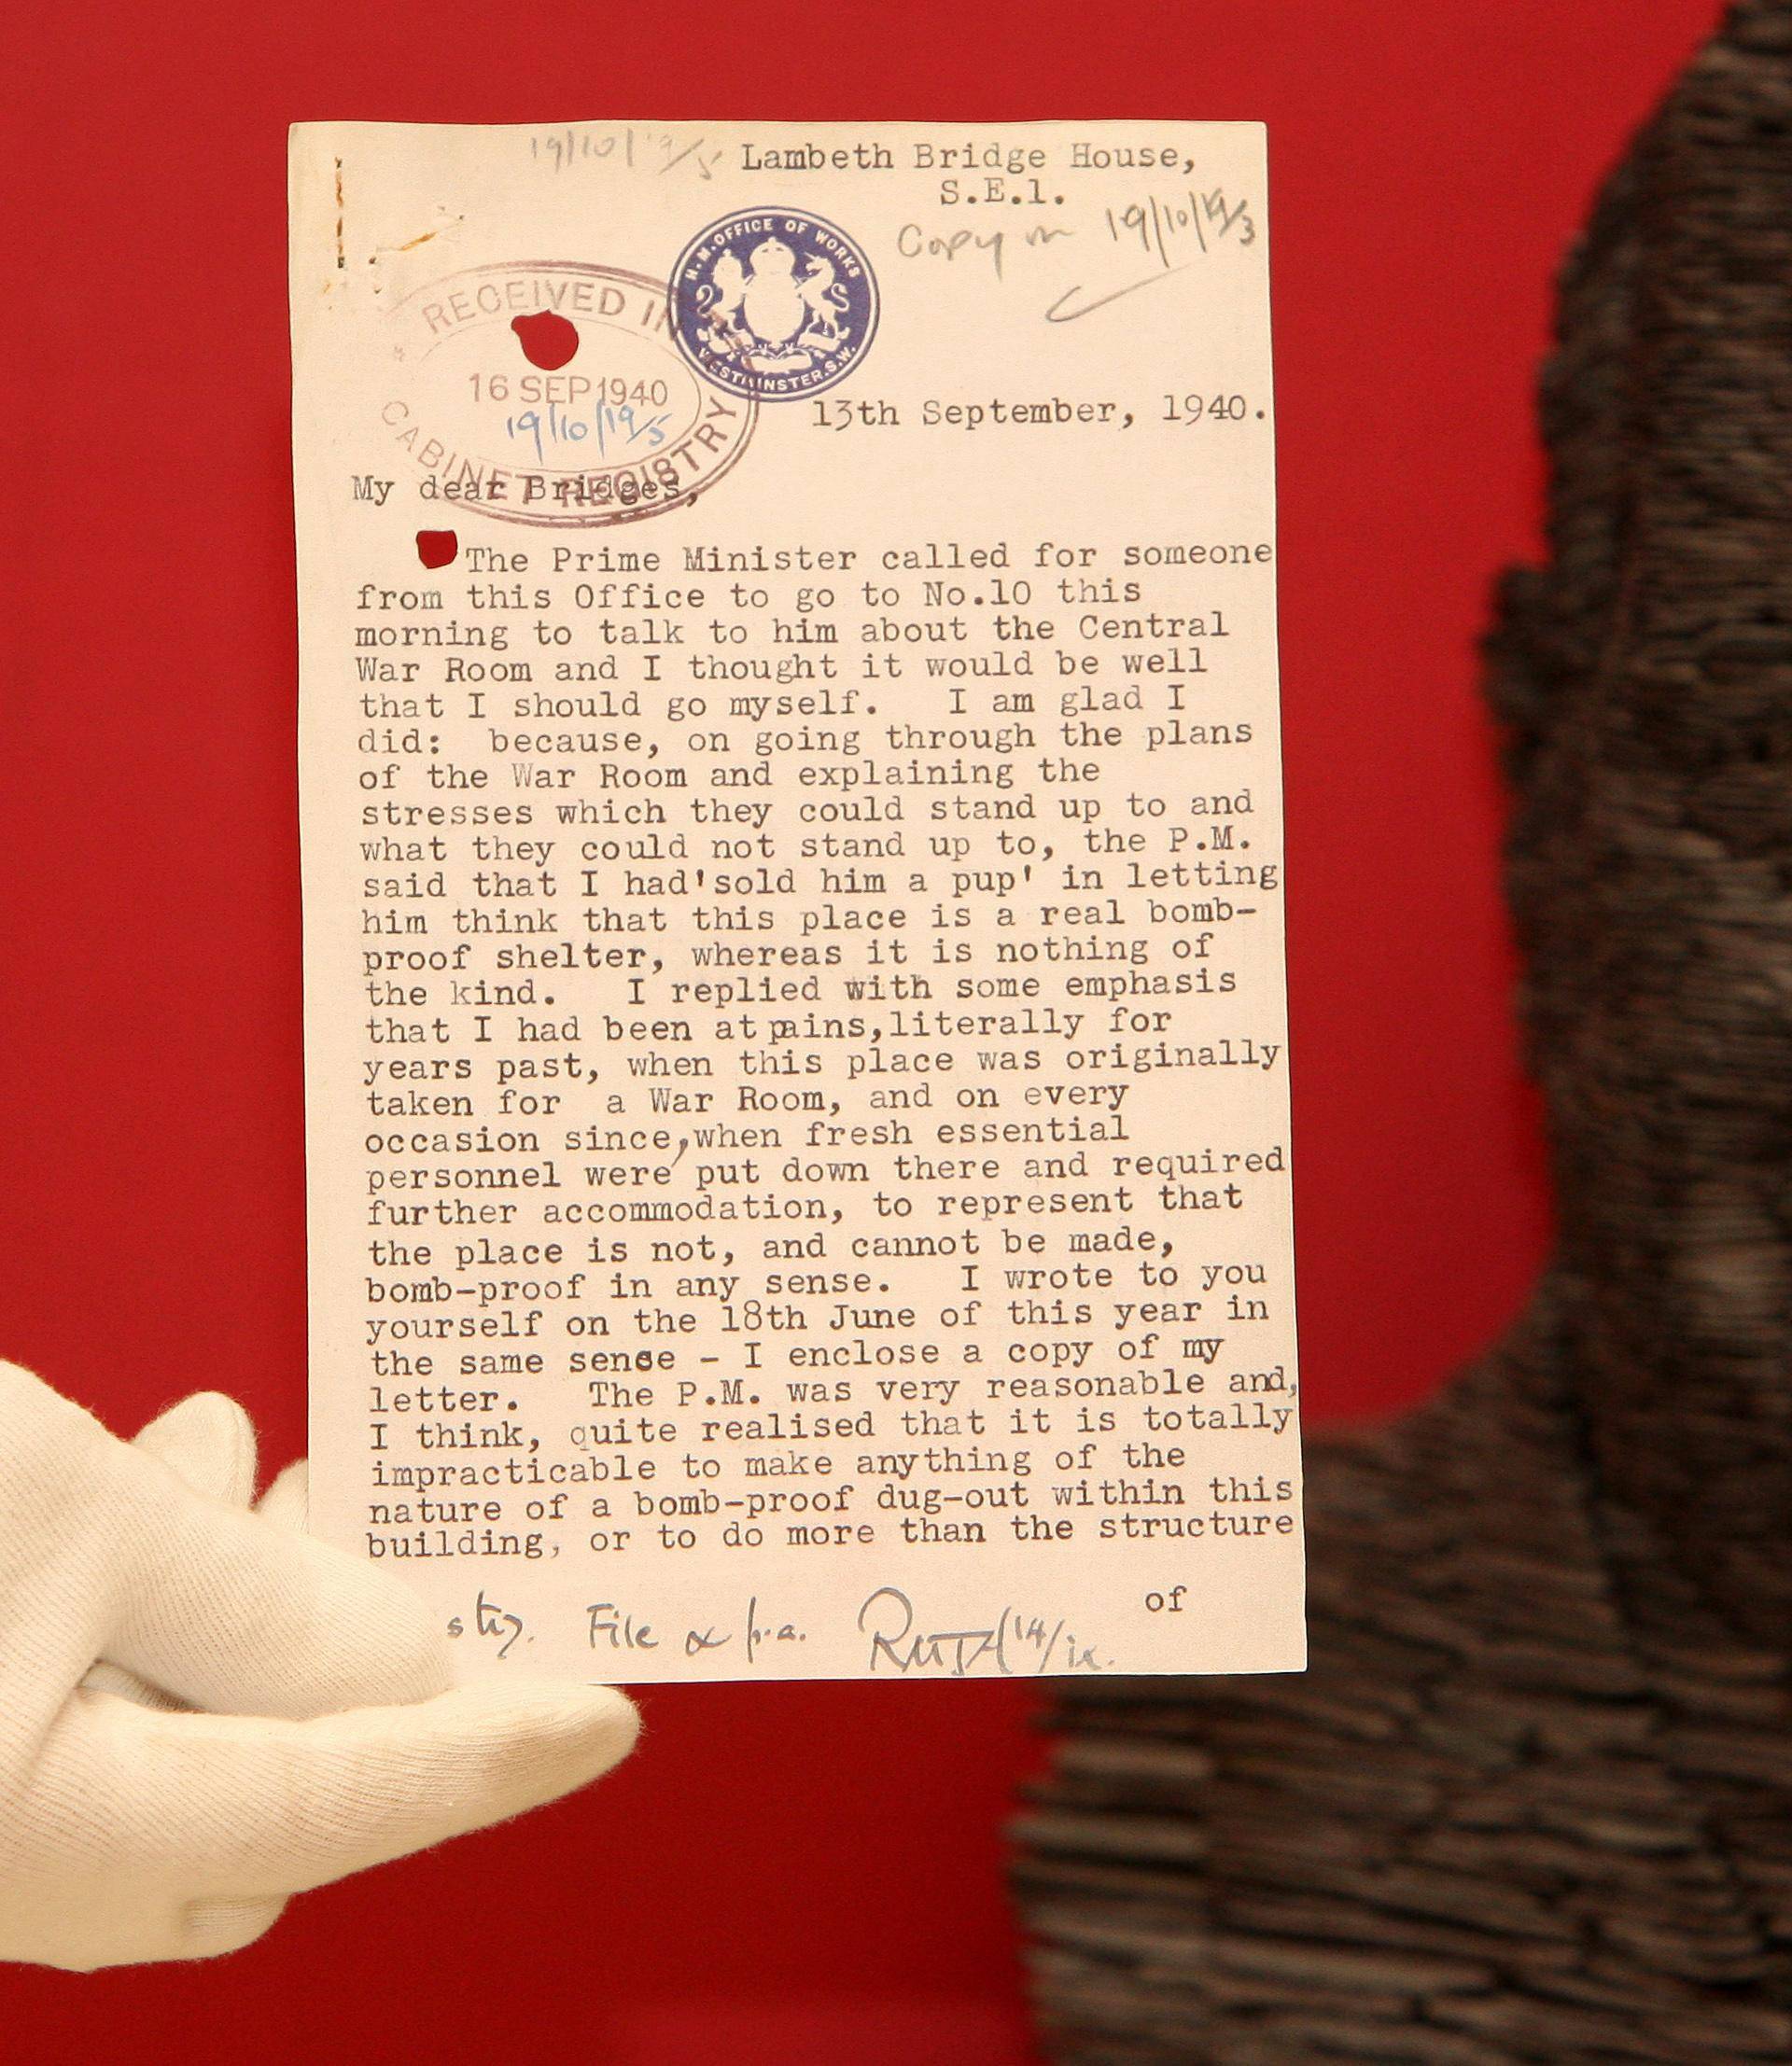 19/10/19/5 Lambeth Bridge House,
S.E.1.
Copy in 19/10/19/3
H.M. OFFICE OF WORKS
WESTMINSTER. S.W.
RECEIVED IN
16 SEP 1940
19/10/19/5
CABINET REGISTRY
13th September, 1940.
My dear Bridges,
The Prime Minister called for someone
from this Office to go to No.10 this
morning to talk to him about the Central
War Room and I thought it would be well
that I should go myself. I am glad I
did: because, on going through the plans
of the War Room and explaining the
stresses which they could stand up to and
what they could not stand up to, the P.M.
said that I had'sold him a pup' in letting
him think that this place is a real bomb-
proof shelter, whereas it is nothing of
the kind. I replied with some emphasis
that I had been at pains,literally for
years past, when this place was originally
taken for a War Room, and on every
occasion since,when fresh essential
personnel were put down there and required
further accommodation, to represent that
the place is not, and cannot be made,
bomb-proof in any sense. I wrote to you
yourself on the 18th June of this year in
the same sense - I enclose a copy of my
letter. The P.M. was very reasonable and,
I think, quite realised that it is totally
impracticable to make anything of the
nature of a bomb-proof dug-out within this
building, or to do more than the structure
of
File & p.a. 14/ix.